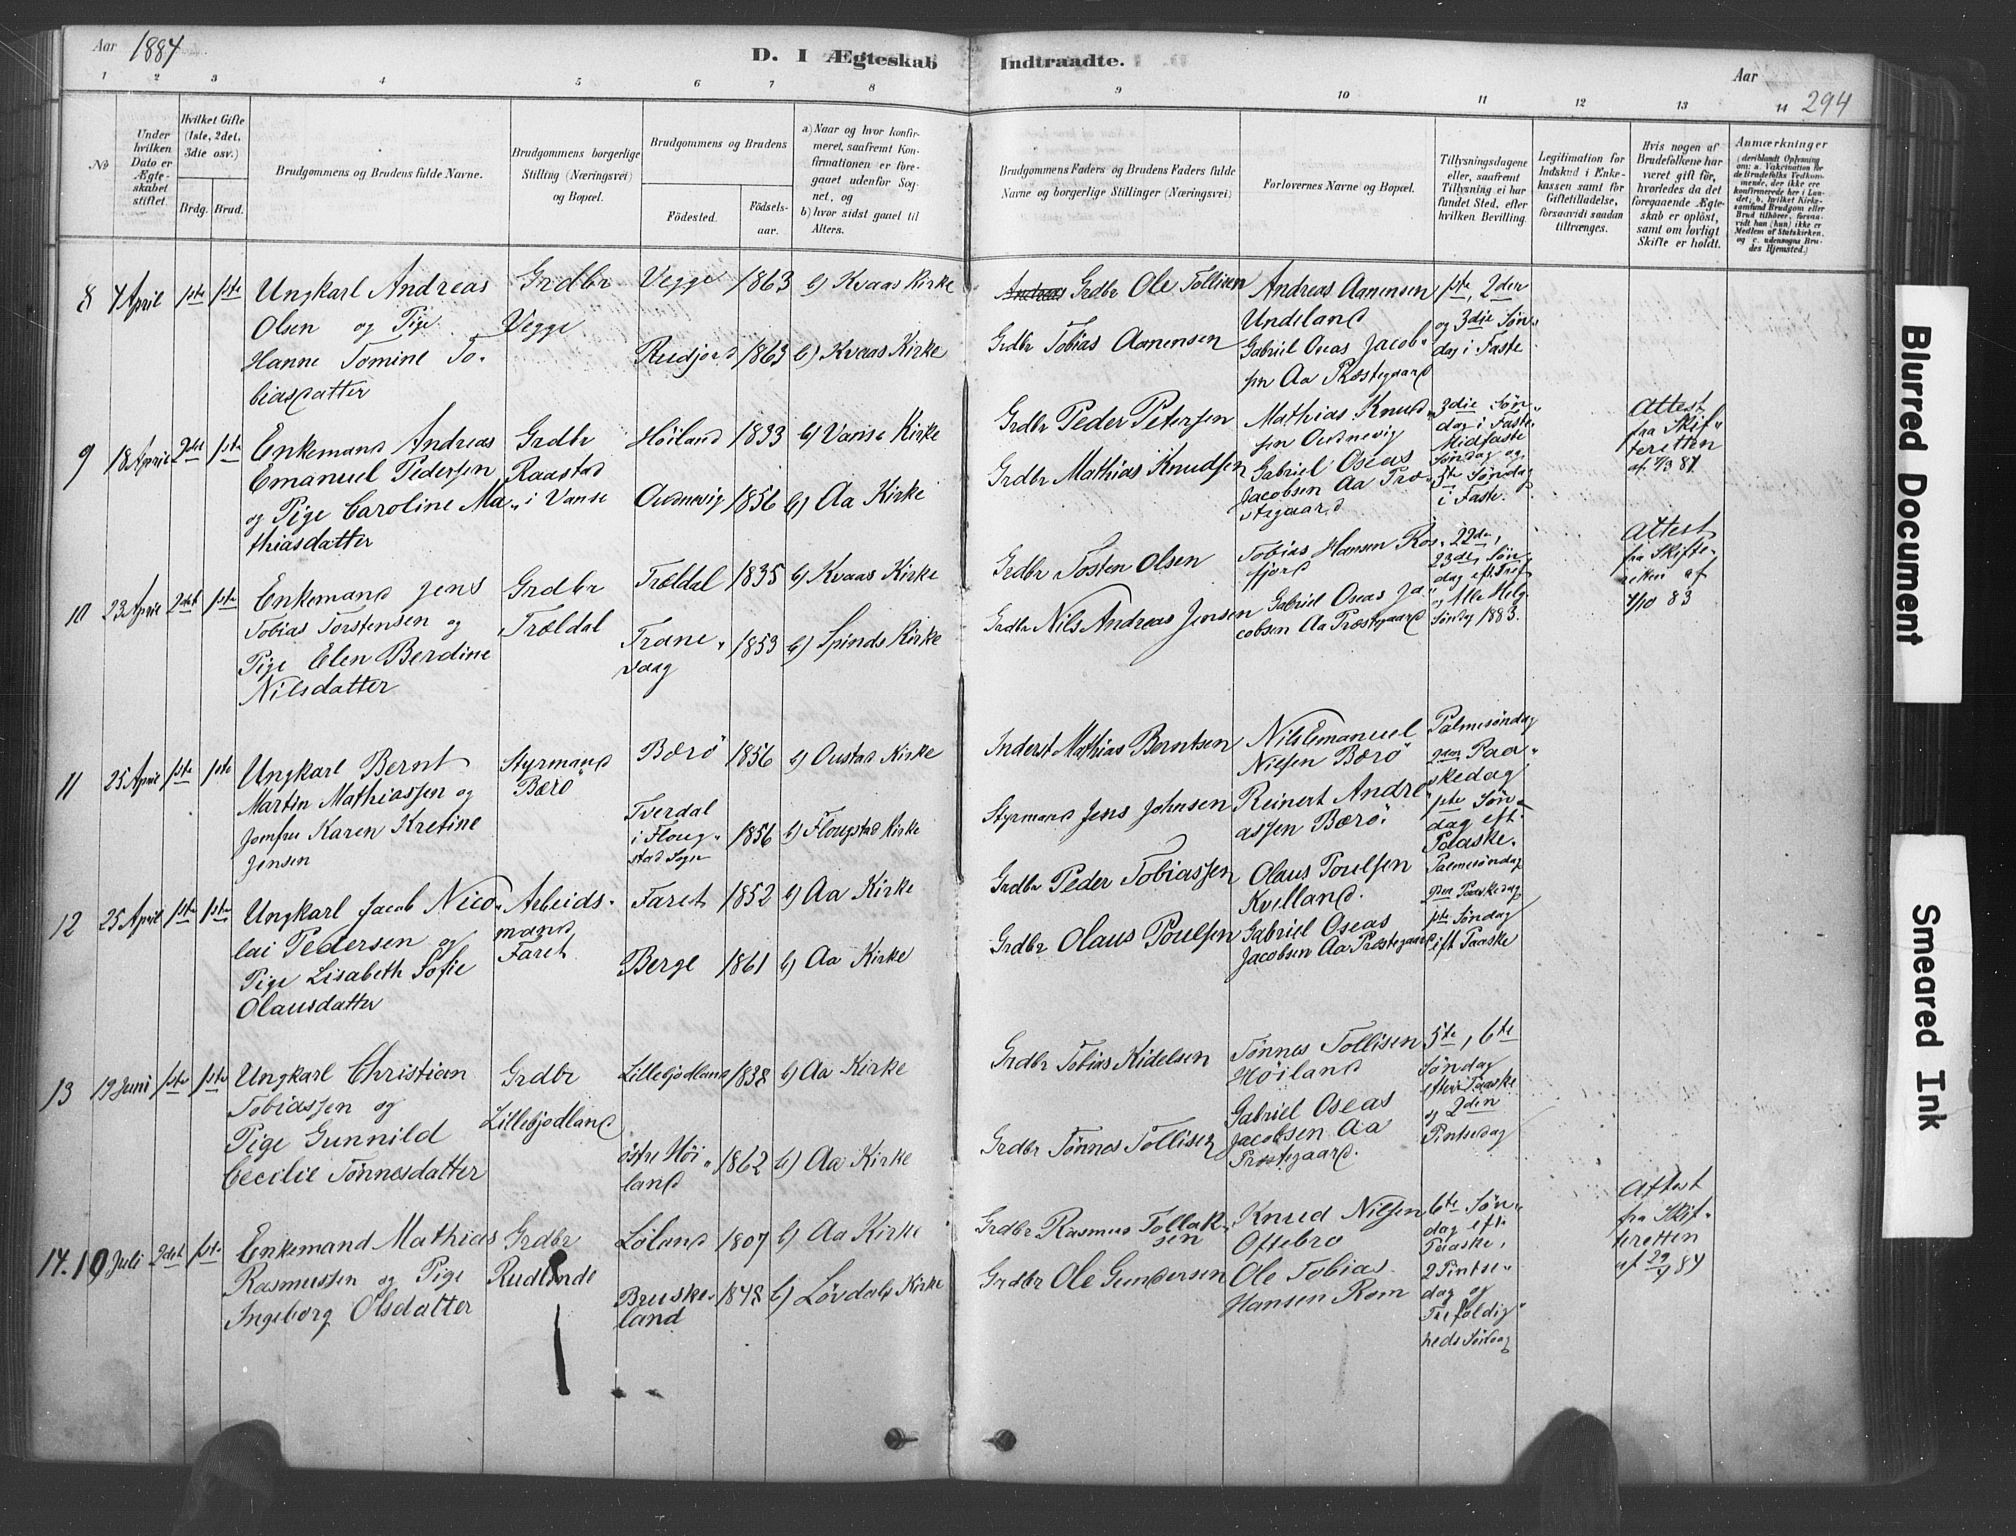 Aar 1884
D. I Ægteskab Indtraadte.
Aar
294
1 2 3 4 5 6 7 8 9 10 11 12 13 14
No
Under hvilken Dato er Ægteskabet stiftet.
Hvilket Gifte (1ste, 2det, 3die osv.)
Brdg. Brud.
Brudgommens og Brudens fulde Navne.
Brudgommens borgerlige Stilling (Næringsvei) og Bopæl.
Brudgommens og Brudens
Födested.
Födsels-aar.
a) Naar og hvor konfirmeret, saafremt Konfirmationen er foregaaet udenfor Sognet, og
b) hvor sidst gaaet til Alters.
Brudgommens Faders og Brudens Faders fulde Navne og borgerlige Stillinger (Næringsvei)
Forlovernes Navne og Bopæl.
Tillysningsdagene eller, saafremt Tillysning ei har fundet Sted, efter hvilken Bevilling.
Legitimation for Indskud i Enkekassen samt for Giftetilladelse, forsaavidt saadan tiltrænges.
Hvis nogen af Brudefolkene har været gift för, hvorledes da det foregaaende Ægteskab er oplöst, samt om lovligt Skifte er holdt.
Anmærkninger
8 7 April 1ste 1ste
Ungkarl Andreas
Olsen og Pige
Hanne Tomine To-
biasdatter
Grdbr
Vegge
Vegge 1863 b) Kvaas Kirke
Rudjord 1863 b) Kvaas Kirke
Andreas Grdbr Ole Tollisen
Grdbr Tobias Aanensen
Andreas Aanensen
Undeland
Gabriel Oseas Jacob-
sen Aa Præstegaard
1ste, 2den
og 3die Søn-
dag i Faste
9 18 April 2det 1ste
Enkemand Andreas
Emanuel Pedersen
og Pige Caroline Ma-
thiasdatter
Grdbr
Raastad
i Vanse
Høiland 1833 b) Vanse Kirke
Oudnevig 1856 b) Aa Kirke
Grdbr Peder Petersen
Grdbr Mathias Knudsen
Mathias Knud-
sen Oudnevig
Gabriel Oseas
Jacobsen Aa Præ-
stegaard
3die Søn-
dag i Faste
Midfaste
Søndag og
5te Søndag
i Faste.
Attest
fra Skif-
teretten
10 23 April 2det 1ste
Enkemand Jens
Tobias Torstensen og
Pige Elen Berdine
Nilsdatter
Grdbr
Trældal
Trældal 1835 b) Kvaas Kirke
Trane-
vaag 1853 b) Spinds Kirke
Grdbr Tosten Olsen
Grdbr Nils Andreas Jensen
Tobias Hansen Ros-
fjord
Gabriel Oseas Ja-
cobsen Aa Præstegaard
22de,
23de, Søn-
dag eft. Tref
og Alle Helg
Søndag 1883.
Attest
fra Skifte-
retten af
4/10 83
11 25 April 1ste 1ste
Ungkarl Bernt
Martin Mathiassen og
Jomfru Karen Kretine
Jensen
Styrmand
Bærø
Bærø 1856 b) Oustad Kirke
Tverdal
i Floug-
stad Sogn 1856 b) Flougstad Kirke
Inderst Mathias Berntsen
Styrmand Jens Johnsen
Nils Emanuel
Nilsen Bærø
Reinert Andre-
assen Bærø.
Palmesøndag
2den Paa-
skedag
1ste Søn-
dag eft.
Paaske.
12 25 April 1ste 1ste
Ungkarl Jacob Nico-
lai Pedersen og
Pige Lisabeth Sofie
Olausdatter
Arbeids-
mand
Faret
Faret 1852 b) Aa Kirke
Berge 1861 b) Aa Kirke
Grdbr Peder Tobiassen
Grdbr Olaus Poulsen
Olaus Poulsen
Kvelland.
Gabriel Oseas
Jacobsen Aa Præstegaard
Palmesøndag
2den Paaskedag
1ste Søndag
eft Paaske
13 19 Juni 1ste 1ste
Ungkarl Christian
Tobiassen og
Pige Gunnild
Cecilie Tønnesdatter
Grdbr
Lillebjodland
Lillebjodland 1838 b) Aa Kirke
østre Høi-
land 1862 b) Aa Kirke
Grdbr Tobias Kidelsen
Grdbr Tønnes Tollisen
Tønnes Tollisen
Høiland
Gabriel Oseas
Jacobsen Aa
Præstegaard.
5te, 6te
Søndag
efter Paaske
og 2den
Pintsedag
14. 10 Juli 2det 1ste
Enkemand Mathias
Rasmussen og Pige
Ingeborg Olsdatter
Grdbr
Rudlende
Løland 1807 b) Aa Kirke
Bruske-
land 1848 b) Løvdals Kirke
Grdbr Rasmus Tollak-
sen
Grdbr Ole Gundersen
Knud Nilsen
Oftebro
Ole Tobias
Hansen Rom
6te Søn-
dag eft.
Paaske,
2 Pintse-
dag og
Trefoldig-
heds Søndag
Attest
fra Skif-
teretten
Blurred Document
Smeared Ink